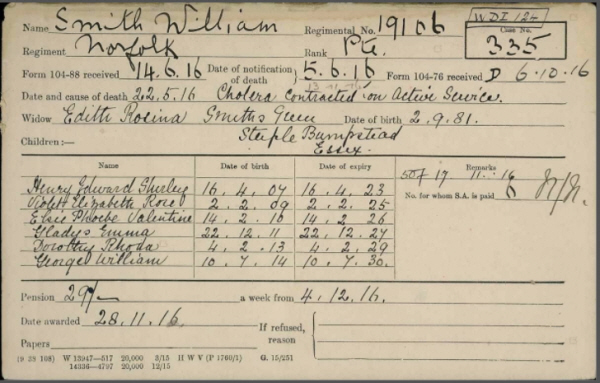 Name Smith William Regimental No. 19106 WDI 124
Regiment Norfolk Rank Pte. Case No. 335
Form 104-88 received 14.6.16 Date of notification of death 5.6.16 Form 104-76 received D 6.10.16
Date and cause of death 22.5.16 Cholera contracted on Active Service.
Widow Edith Rosina Smiths Green Date of birth 2.9.81.
Steeple Bumpstead
Essex.
Children:—
Name Date of birth Date of expiry Remarks
Henry Edward Shirley 16.4.07 16.4.23
Violet Elizabeth Rose 2.2.09 2.2.25 No. for whom S.A. is paid 6
Elsie Phoebe Valentine 14.2.10 14.2.26
Gladys Emma 22.12.11 22.12.27
Dorothy Rhoda 4.2.13 4.2.29
George William 10.7.14 10.7.30.
Pension 29/- a week from 4.12.16.
Date awarded 28.11.16. If refused, reason
Papers
(9 39 108) W 13947—517 20,000 3/15 H W V (P 1760/1) G. 15/251
14336—4797 20,000 12/15